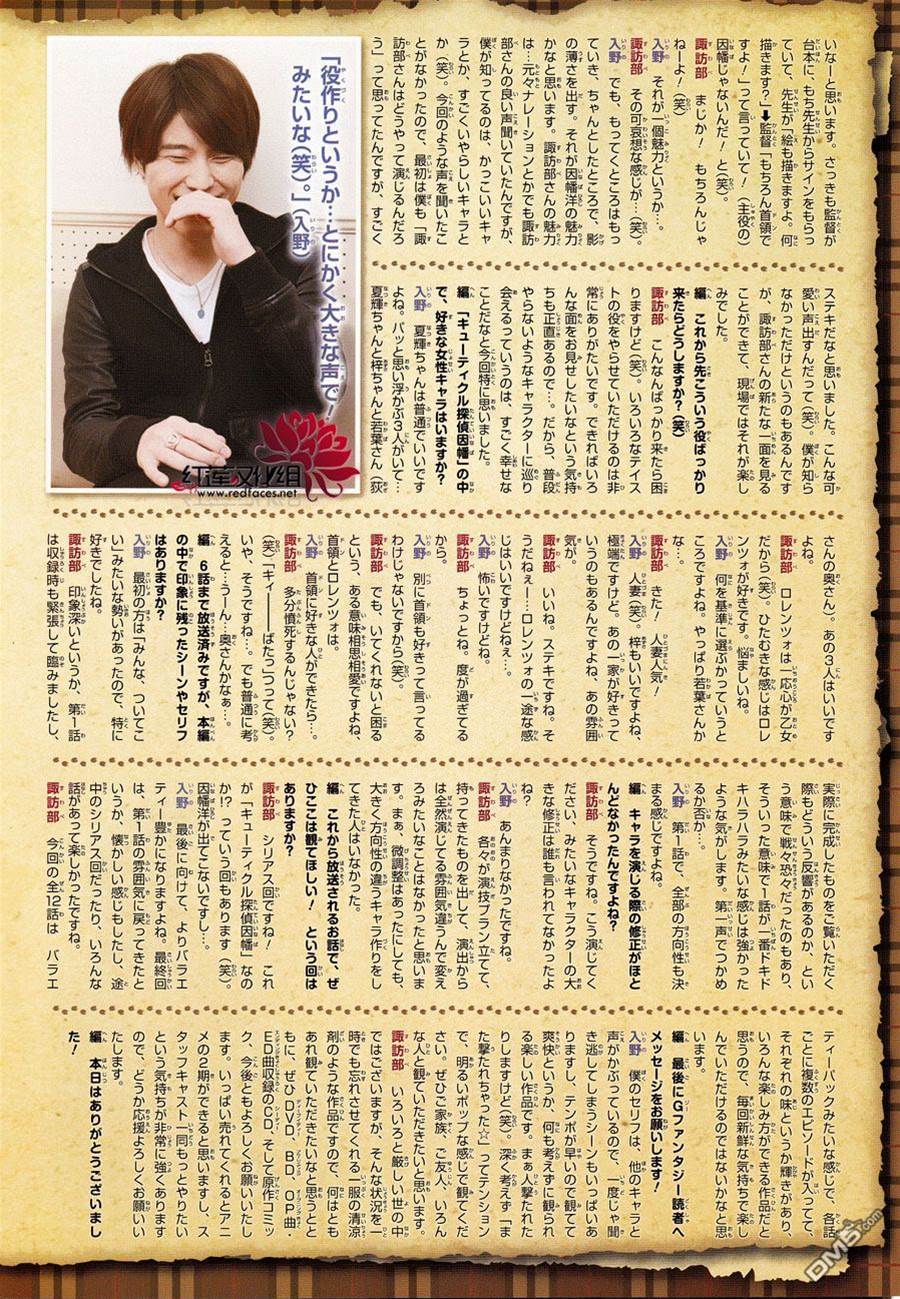 「役作りというか…とにかく大きな声で！
みたいな（笑）。」（入野）
いなーと思います。さっきも監督が
台本に、もち先生からサインをもらっ
ていて、先生が「絵も描きますよ。何
描きます？」➡監督「もちろん首領で
すよ！」って言っていて！（主役の）
因幡じゃないんだ！と（笑）。
諏訪部　まじか！　もちろんじゃ
ねーよ！（笑）
入野　それが一個魅力というか…。
諏訪部　その可哀想な感じが…（笑）。
入野　でも、もってくところはもっ
ていき、ちゃんとしたところで、影
の薄さを出す。それが因幡洋の魅力
かなと思います。諏訪部さんの魅力
は…元々ナレーションとかでも諏訪
部さんの良い声聞いていたんですが、
僕が知ってるのは、かっこいいキャ
ラとか、すごくいやらしいキャラと
か（笑）。今回のような声を聞いたこ
とがなかったので、最初は僕も「諏
訪部さんはどうやって演じるんだろ
う」って思ってたんですが、すごく
ステキだなと思いました。こんな可
愛い声出すんだって（笑）。僕が知ら
なかっただけというのもあるんです
が、諏訪部さんの新たな一面を見る
ことができて、現場ではそれが楽し
みでした。
編　これから先こういう役ばっかり
来たらどうしますか？（笑）
諏訪部　こんなんばっかり来たら困
りますけど（笑）。いろいろなテイス
トの役をやらせていただけるのは非
常にありがたいです。できればいろ
んな面をお見せしたいなという気持
ちも正直あるので…。だから、普段
やらないようなキャラクターに巡り
会えるっていうのは、すごく幸せな
ことだなと今回特に思いました。
編　「キューティクル探偵因幡」の中
で、好きな女性キャラはいますか？
入野　夏輝ちゃんは普通でいいです
よね。パッと思い浮かぶ３人がいて…
夏輝ちゃんと梓ちゃんと若葉さん（荻
さんの奥さん）。あの３人はいいです
よね。
諏訪部　ロレンツォは一応心が乙女
だから（笑）。ひたむきな感じはロレ
ンツォが好きです。悩ましいね。
入野　何を基準に選ぶかっていうと
ころですよね。やっぱり若葉さんか
な…。
諏訪部　きた！　人妻人気！
入野　人妻（笑）。梓もいいですよね、
極端ですけど。あの一家が好きって
いうのもあるんですよね、あの雰囲
気が。
諏訪部　いいね。ステキですね。そ
うだねぇー…ロレンツォの一途な感
じはいいですけどねぇ。
入野　怖いですけどね。
諏訪部　ちょっとね。度が過ぎてる
から。
入野　別に首領も好きって言ってる
わけじゃないですから（笑）。
諏訪部　でも、いてくれないと困る
という、ある意味相思相愛ですよね、
首領とロレンツォは。
入野　首領に好きな人ができたら…。
諏訪部　多分憤死するんじゃない？
（笑）「キィーーーばたっ」つって（笑）。
いや、そうですね…。でも普通に考
えると…うーん…奥さんかなぁ…。
編　６話まで放送済みですが、本編
の中で印象に残ったシーンやセリフ
はありますか？
入野　最初の方は「みんな、ついてこ
い」みたいな勢いがあったので、特に
好きでしたね。
諏訪部　印象深いというか、第１話
は収録時も緊張して臨みましたし、
実際に完成したものをご覧いただく
際もどういう反響があるのか、とい
う意味で戦々恐々だったのもあり、
そういった意味で１話が一番ドキド
キハラハラみたいな感じは強かった
ような気がします。第一声でつかめ
るか否か…。
入野　第１話で、全部の方向性も決
まる感じですよね。
編　キャラを演じる際の修正がほと
んどなかったんですよね？
諏訪部　そうですね。こう演じてく
ださい、みたいなキャラクターの大
きな修正は誰も言われてなかったよ
ね？
入野　あんまりなかったですね。
諏訪部　各々が演技プラン立てて、
持ってきたものを出して、演出から
は全然演じてる雰囲気違うんで変え
ろみたいなことはなかったと思いま
す。まぁ、微調整はあったにしても、
大きく方向性の違うキャラ作りをし
てきた人はいなかった。
編　これから放送されるお話で、ぜ
ひここは観てほしい！　という回は
ありますか？
諏訪部　シリアス回ですね！　これ
が「キューティクル探偵因幡」なの
か!?　っていう回もあります（笑）。
因幡洋が出てこないですし…。
入野　最後に向けて、よりバラエ
ティー豊かになりますよね。最終回
は、第１話の雰囲気に戻ってきたと
いうか、懐かしい感じもしたし、途
中のシリアス回だったり、いろんな
話があって楽しかったですね。
諏訪部　今回の全12話は　バラエ
ティーパックみたいな感じで、各話
ごとに複数のエピソードが入ってて、
それぞれの味というか輝きがあり、
いろんな楽しみ方ができる作品だと
思うので、毎回新鮮な気持ちで楽し
んでいただけるのではないかなと思
います。
編　最後にＧファンタジー読者へ
メッセージをお願いします！
入野　僕のセリフは、他のキャラと
声がかぶっているので、一度じゃ聞
き逃してしまうシーンもいっぱいあ
りますし、テンポが早いので観てて
爽快というか、何も考えずに観られ
る楽しい作品です。まぁ人撃たれた
りしますけど（笑）。深く考えず「ま
た撃たれちゃった☆」ってテンション
で、明るいポップな感じで観てくだ
さい。ぜひご家族、ご友人、いろん
な人と観ていただきたいと思います。
諏訪部　いろいろと厳しい世の中
ではございますが、そんな状況を一
時でも忘れさせてくれる一服の清涼
剤のような作品ですので、何はとも
あれ観ていただきたいなと思うとと
もに、ぜひＤＶＤ、ＢＤ、ＯＰ曲・
ＥＤ曲収録のＣＤ、そして原作コミッ
ク、今後ともよろしくお願いいたし
ます。いっぱい売れてくれるとアニ
メの２期ができると思いますし、ス
タッフキャスト一同もっとやりたい
という気持ちが非常に強くあります
ので、どうか応援よろしくお願いい
たします。
編　本日はありがとうございまし
た！
红莲汉化组
www.redfaces.net
DM5.com